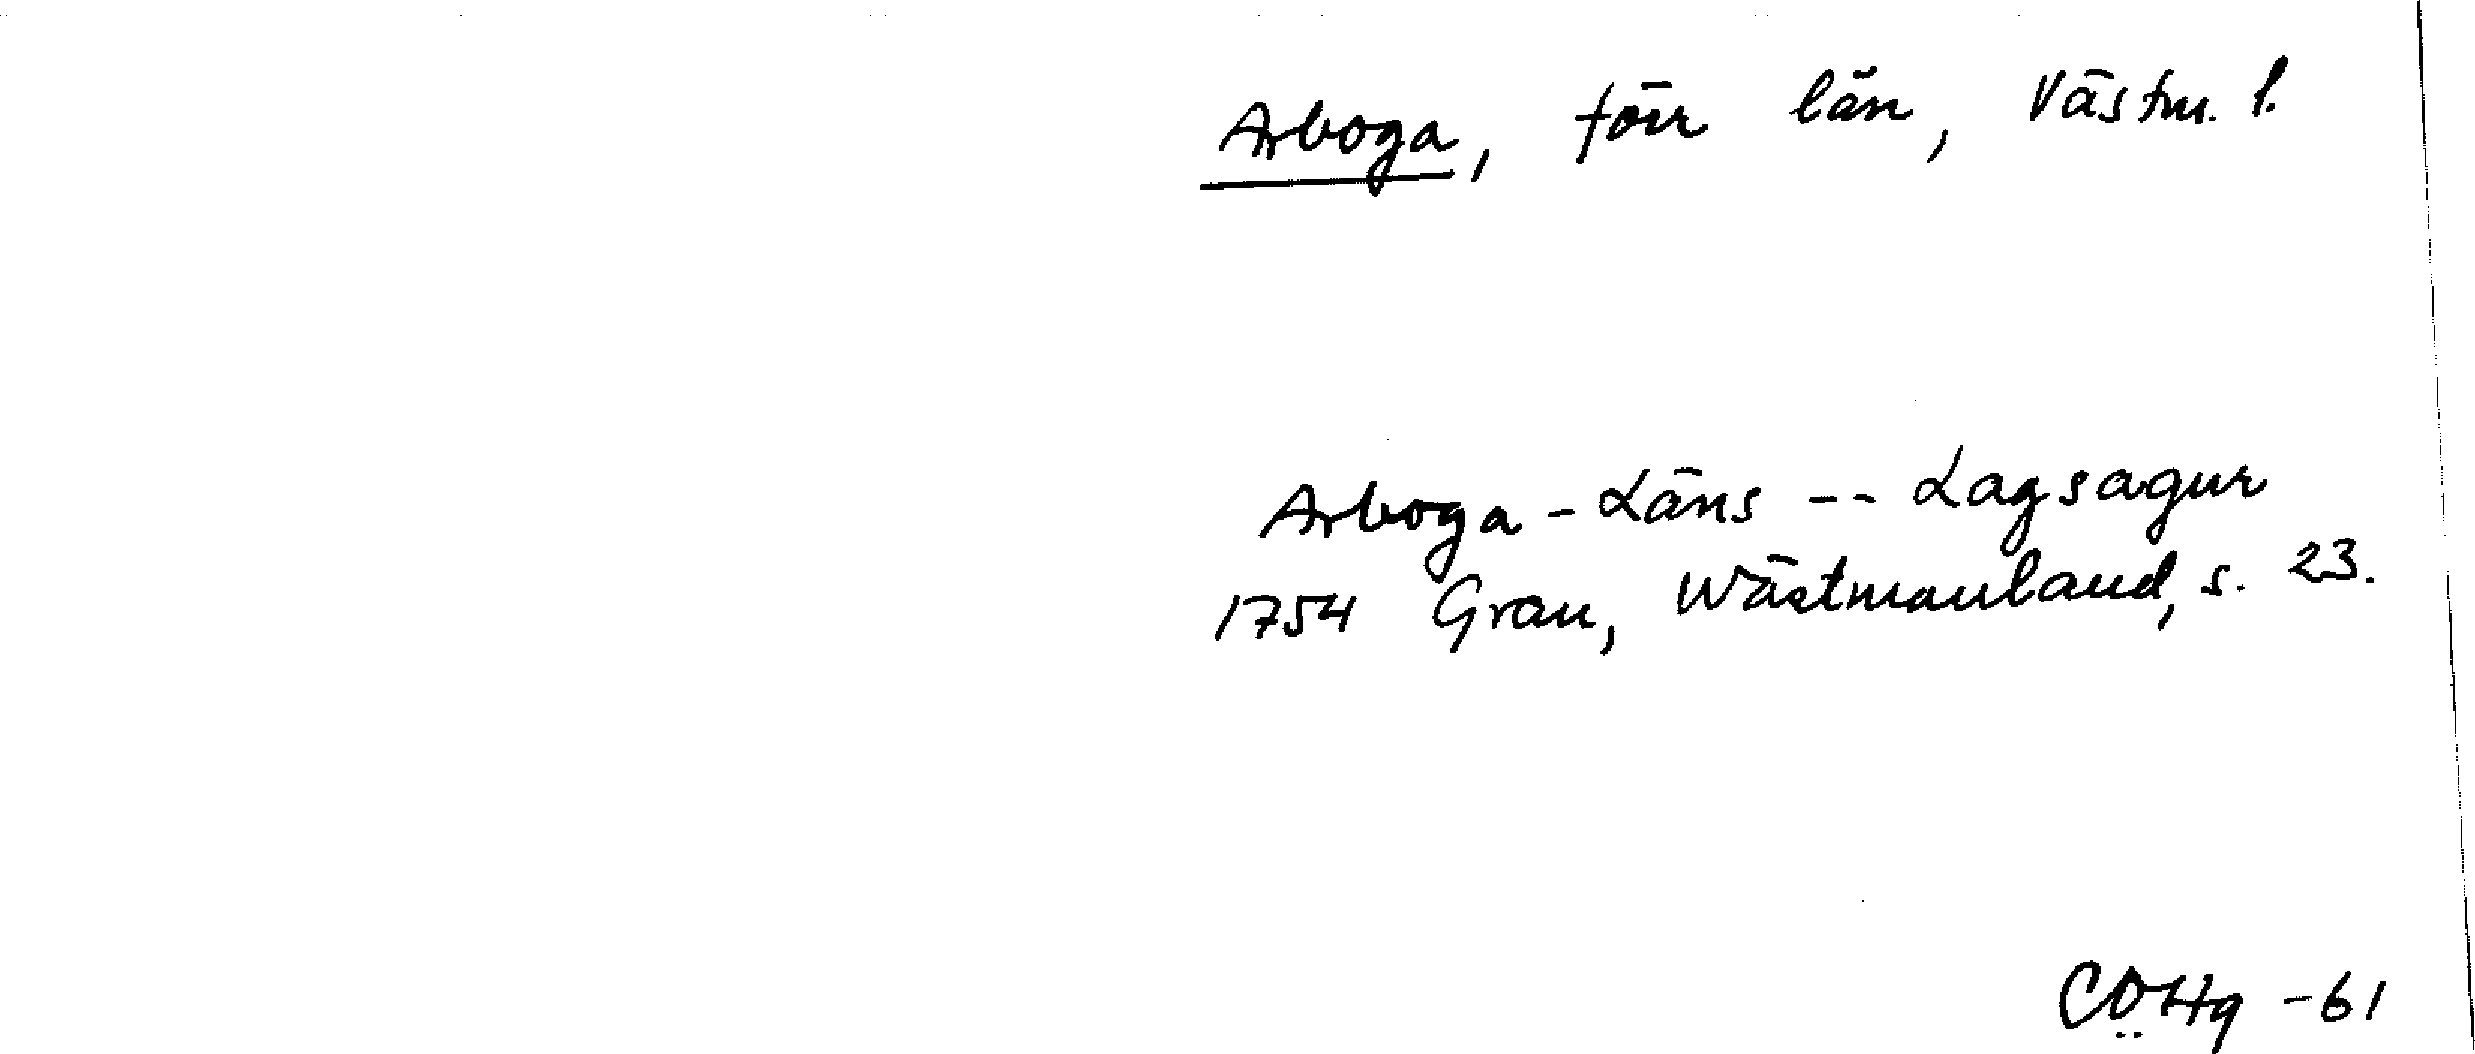 Arboga, förr län, Västm. l.
Arboga - Läns -- Lagsagur
1754 Grau, Wästmanland, s. 23.
CÖHg -61